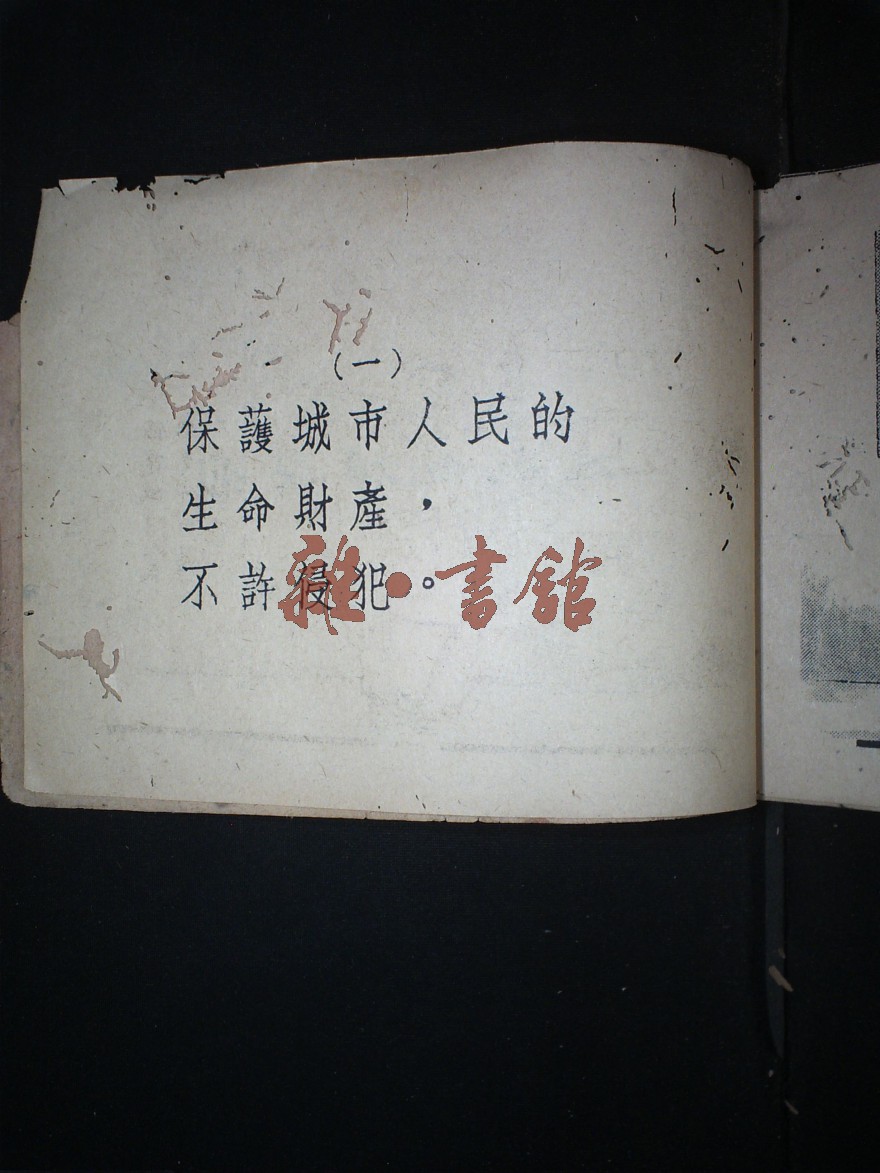 (一)
保護城市人民的
生命財產，
不許侵犯。
雜·書館